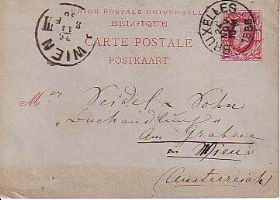 UNION POSTALE UNIVERSELLE
BELGIQUE
CARTE POSTALE
POSTKAART
BRUXELLES
WIEN
Seidel & Sohn
Buchandlung
Am Graben
in Wien
(Austerreich)